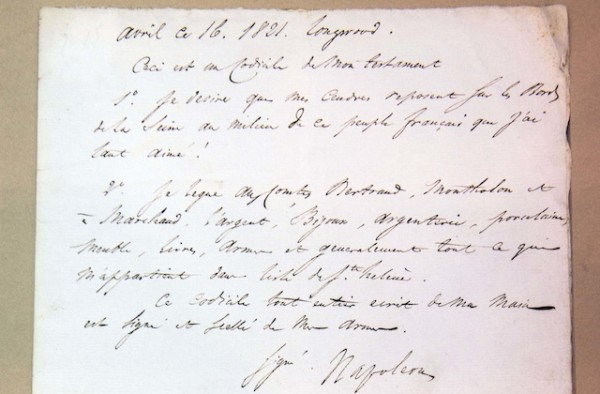 avril ce 16. 1821. Longwood.
Ceci est un Codicile de Mon testament
1°. Je desire que mes Cendres reposent sur les Bords
de la Seine au milieu de ce peuple français que j'ai
tant aimé!
2°. Je legue aux Comtes Bertrand, Montholon et
à Marchand, l'argent, Bijoux, argenterie, porcelaine,
meuble, livres, armes et generalement tout ce qui
m'appartient dans l'isle de Ste helene.
Ce codicile tout entier ecrit de Ma Main
est signé et scellé de Mes Armes.
signé. Napoleon